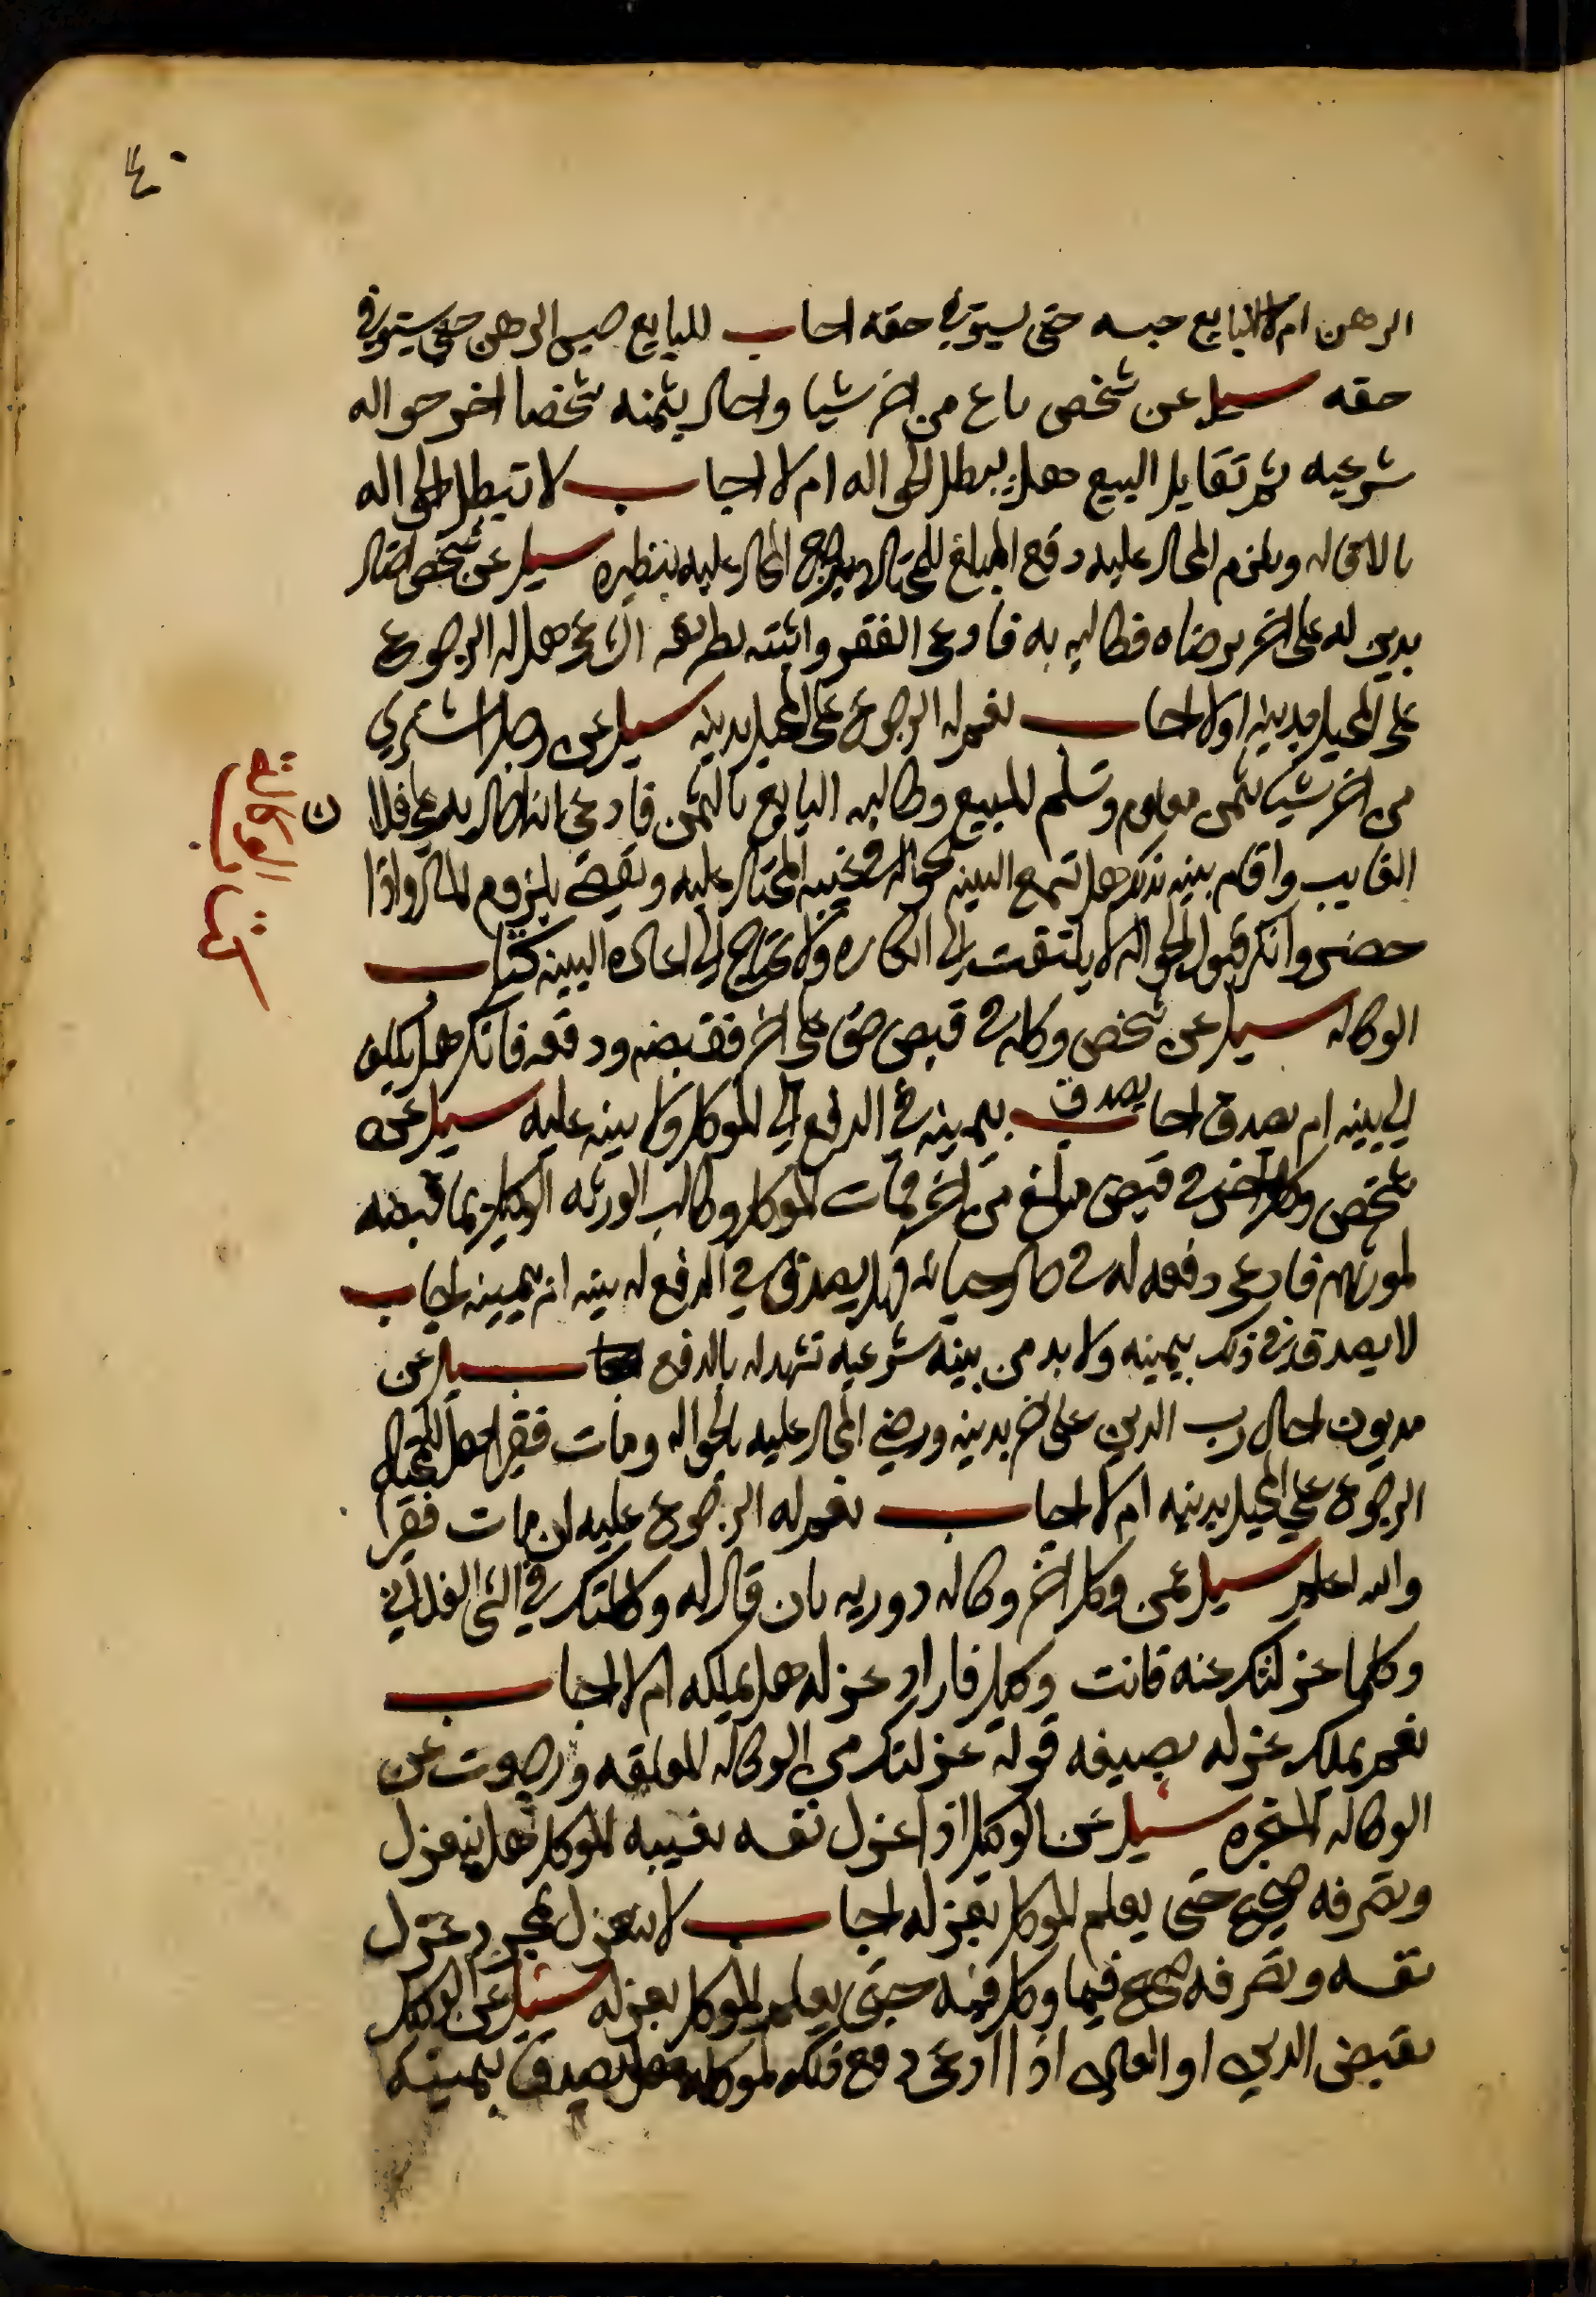 ٤٠
الرهن ام لا للبايع حبسه حتى يستوفي حقه اجاب للبايع حبس الرهن حتى يستوفي
حقه سيل عن شخص باع من اخر شيا واحال بثمنه شخصا اخر حواله
شرعيه ثم تقايلا البيع هل يبطل الحواله ام لا اجاب لا تبطل الحواله
بالاقاله ويلزم المحال عليه دفع المبلغ للمحتال ويرجع المحال عليه بنظيره سيل عن شخص احتال
بدين له على اخر برضاه فطالبه به فادعى الفقر واثبته بطريقه الشرعي هل له الرجوع
على المحيل بدينه او لا اجاب نعم له الرجوع على المحيل بدينه سيل عن رجل اشتري
من اخر شيا بثمن معلوم وتسلم المبيع وطالبه البايع بالثمن فادعى انه احال به على فلان
الغايب واقام بينه بذلك هل تسمع البينه بالحواله في غيبه المحتال عليه ويقضي بلزوم المال واذا
حضر وانكر قبول الحواله لا يلتفت الى انكاره ولا يحتاج الى اعاده البينه كتاب
كتاب الوكالة
الوكاله سيل عن شخص وكله في قبض حق على اخر فقبضه ودفعه فانكر هل يكلف
الى بينه ام يصدق اجاب يصدق بيمينه في الدفع الى الموكل ولا بينه عليه سيل عن
شخص وكل اخر في قبض مبلغ من اخر فمات الموكل وطالب الورثه الوكيل بما قبضه
لمورثهم فادعى دفعه له في حال حياته فهل يصدق في الدفع له بينه ام بيمينه اجاب
لا يصدق في ذلك بيمينه ولا بد من بينه شرعيه تشهد له بالدفع سيل عن
مديون احال رب الدين على اخر بدينه ورضي المحال عليه بالحواله ومات فقيرا هل للمحتال
الرجوع على المحيل بدينه ام لا اجاب نعم له الرجوع عليه ان مات فقيرا
والله اعلم سيل عمن وكل اخر وكاله دوريه بان قال له وكلتك في الشي الفلاني
وكلما عزلتك عنه فانت وكيلي فاراد عزله هل يملكه ام لا اجاب
نعم يملك عزله بصيغه قوله عزلتك من الوكاله المعلقه ورجعت عن
الوكاله المنجزه سيل عن الوكيل اذا عزل نفسه بغيبه الموكل هل ينعزل
وتصرفه صحيح حتى يعلم الموكل بعزله اجاب لا ينعزل بمجرد عزل
نفسه وتصرفه صحيح فيما وكل فيه حتى يعلم الموكل بعزله سيل عن الوكيل
بقبض الدين او العين اذا ادعى دفع ذلك لموكله هل يصدق بيمينه